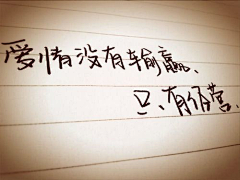 爱情没有输赢、
只有经营、